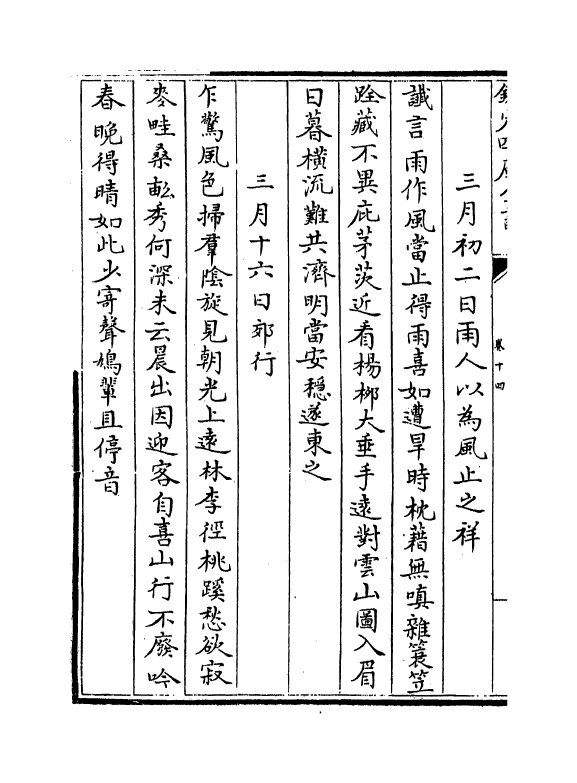 三月初二日雨人以為風止之祥
讖言雨作風當止得雨喜如遭旱時枕藉無嗔雜簑笠
跧藏不異庇茅茨近看楊栁大垂手遠對雲山圖入眉
日暮橫流難共濟明當安穏遂東之
三月十六日郊行
乍驚風色掃羣陰旋見朝光上遠林李徑桃蹊愁欲寂
麥畦桑畝秀何深未云晨出因迎客自喜山行不廢吟
春晚得晴如此少寄聲鳩輩且停音
卷十四